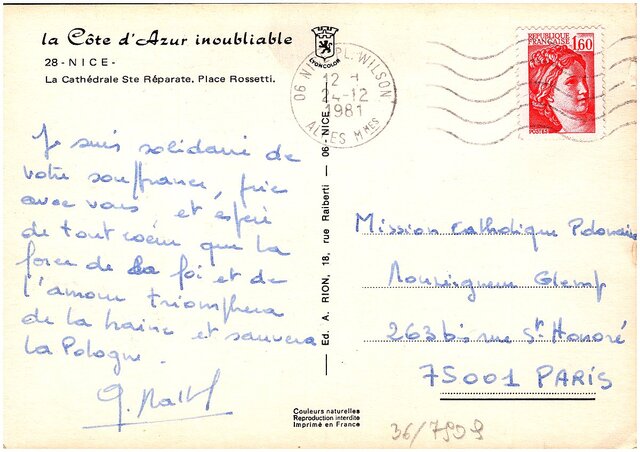 la Côte d'Azur inoubliable
28 - NICE -
La Cathédrale Ste Réparate, Place Rossetti.
LYONCOLOR
06 NICE PL. WILSON
12 H
24-12
1981
ALPES Mmes
REPUBLIQUE
FRANÇAISE
1,60
POSTES
Je suis solidaire de
votre souffrance, prie
avec vous, et espère
de tout coeur que la
force de la foi et de
l'amour triomphera
de la haine et sauvera
la Pologne.
Ed. A. RION, 18, rue Raiberti — 06 - NICE
Mission Catholique Polonaise
Monseigneur Glemp
263 bis rue St Honoré
75001 PARIS
Couleurs naturelles
Reproduction interdite
Imprimé en France